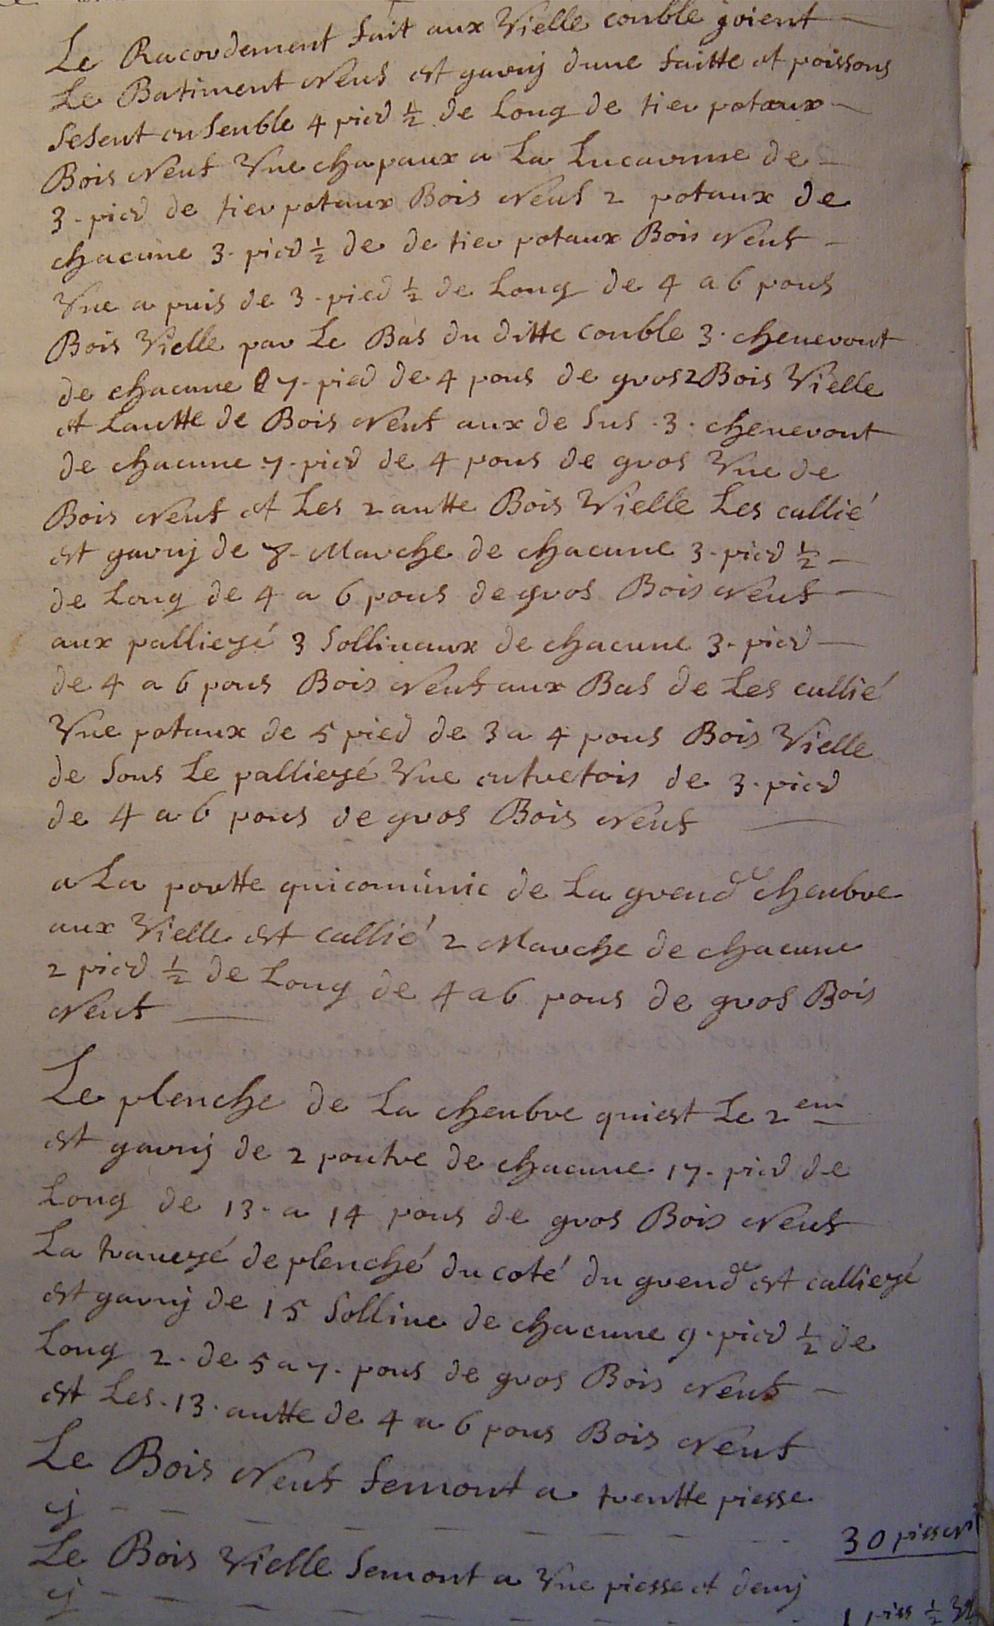 Le Racordement fait aux Vielle couble joient
Le Batiment Neuf est garnij dune faitte et poissons
Sesent ensenble 4 pied ½ de Long de tier potaux
Bois Neuf Vne chapaux a La Lucarnne de
3 pied de tier potaux Bois Neuf 2 potaux de
chacune 3 pied ½ de de tier potaux Bois Neuf
Vne a puis de 3 pied ½ de Long de 4 a 6 pous
Bois Vielle par Le Bas du ditte couble 3 chenevont
de chacune 7 pied de 4 pous de gros 2 Bois Vielle
et Lautte de Bois Neuf aux de sus 3 chenevont
de chacune 7 pied de 4 pous de gros Vne de
Bois Neuf et Les 2 autte Bois Vielle Les callié
est garnij de 8 Marche de chacune 3 pied ½
de Long de 4 a 6 pous de gros Bois Neuf
aux pallieyé 3 Sollineaux de chacune 3 pied
de 4 a 6 pous Bois Neuf aux Bas de Les callié
Vne potaux de 5 pied de 3 a 4 pous Bois Vielle
de sous Le pallieyé Vne entretois de 3 pied
de 4 a 6 pous de gros Bois Neuf
a La portte qui comunic de La grend chenbre
aux Vielle est callié 2 Marche de chacune
2 pied ½ de Long de 4 a 6 pous de gros Bois
Neuf
Le plenche de La chenbre qui est Le 2em
est garnij de 2 poutre de chacune 17 pied de
Long de 13 a 14 pous de gros Bois Neuf
La traveyé de plenché du coté du grend est callieyé
est garnij de 15 Solline de chacune 9 pied ½ de
Long 2 de 5 a 7 pous de gros Bois Neuf
est Les 13 autte de 4 a 6 pous Bois Neuf
Le Bois Neuf Semont a trentte piesse
cij 30 piesse
Le Bois Vielle Semont a Vne piesse et demij
cij 1 piss ½